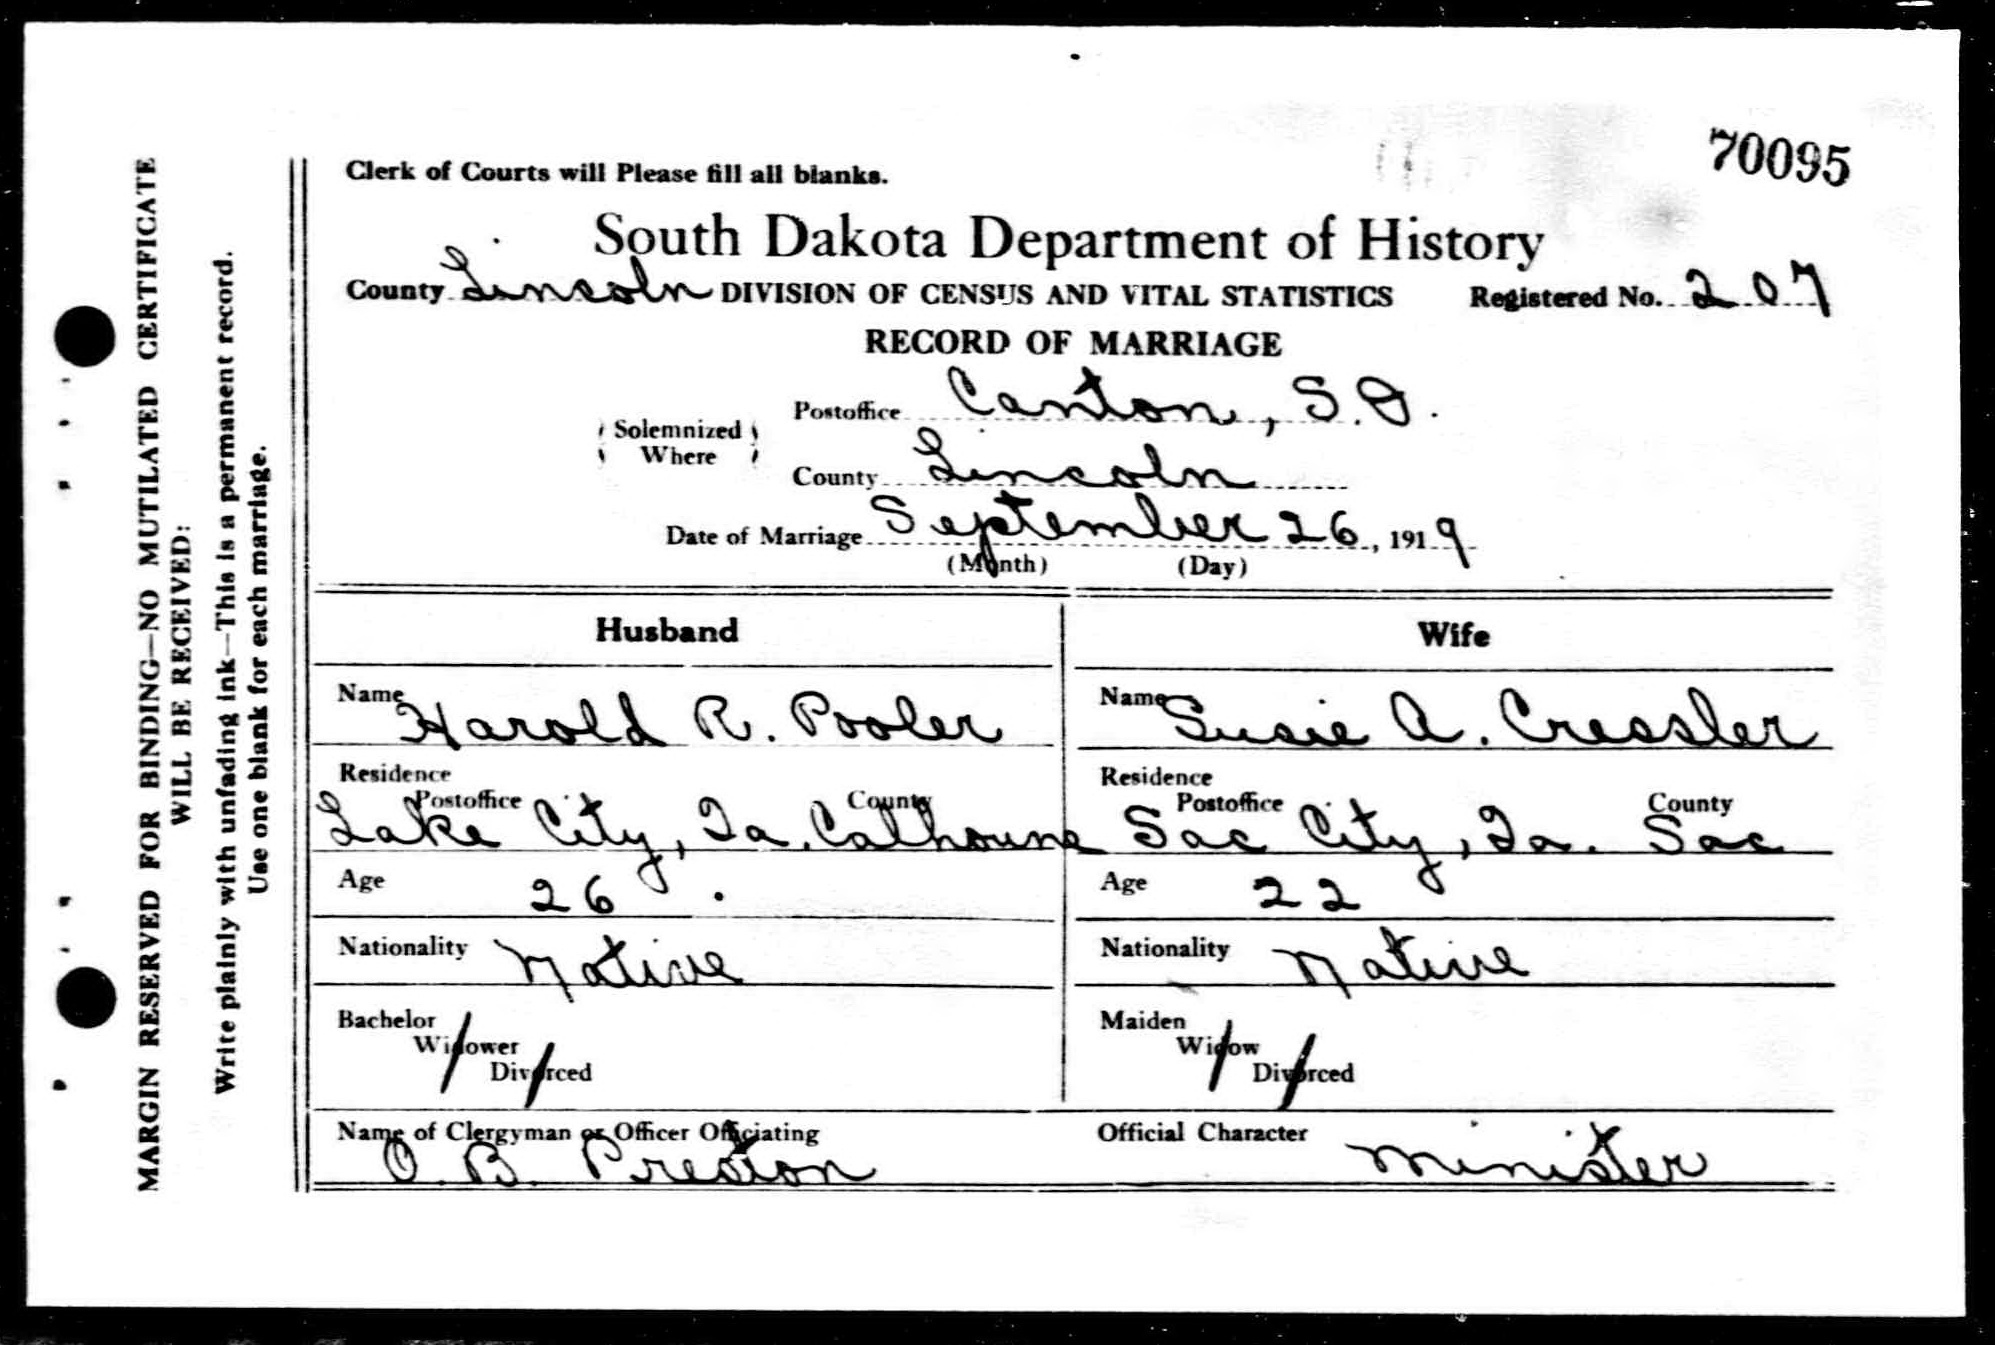 70095
Clerk of Courts will Please fill all blanks.
South Dakota Department of History
County Lincoln DIVISION OF CENSUS AND VITAL STATISTICS Registered No. 207
RECORD OF MARRIAGE
Solemnized Where
Postoffice Canton, S.D.
County Lincoln
Date of Marriage September 26, 1919
(Month) (Day)
Husband
Name Harold R. Pooler
Residence
Postoffice County
Lake City, Ia. Calhoune
Age 26
Nationality Native
Bachelor
Widower
Divorced
Wife
Name Susie A. Cressler
Residence
Postoffice County
Sac City, Ia. Sac
Age 22
Nationality Native
Maiden
Widow
Divorced
Name of Clergyman or Officer Officiating
O. B. Preston
Official Character Minister
MARGIN RESERVED FOR BINDING—NO MUTILATED CERTIFICATE
WILL BE RECEIVED:
Write plainly with unfading ink—This is a permanent record.
Use one blank for each marriage.